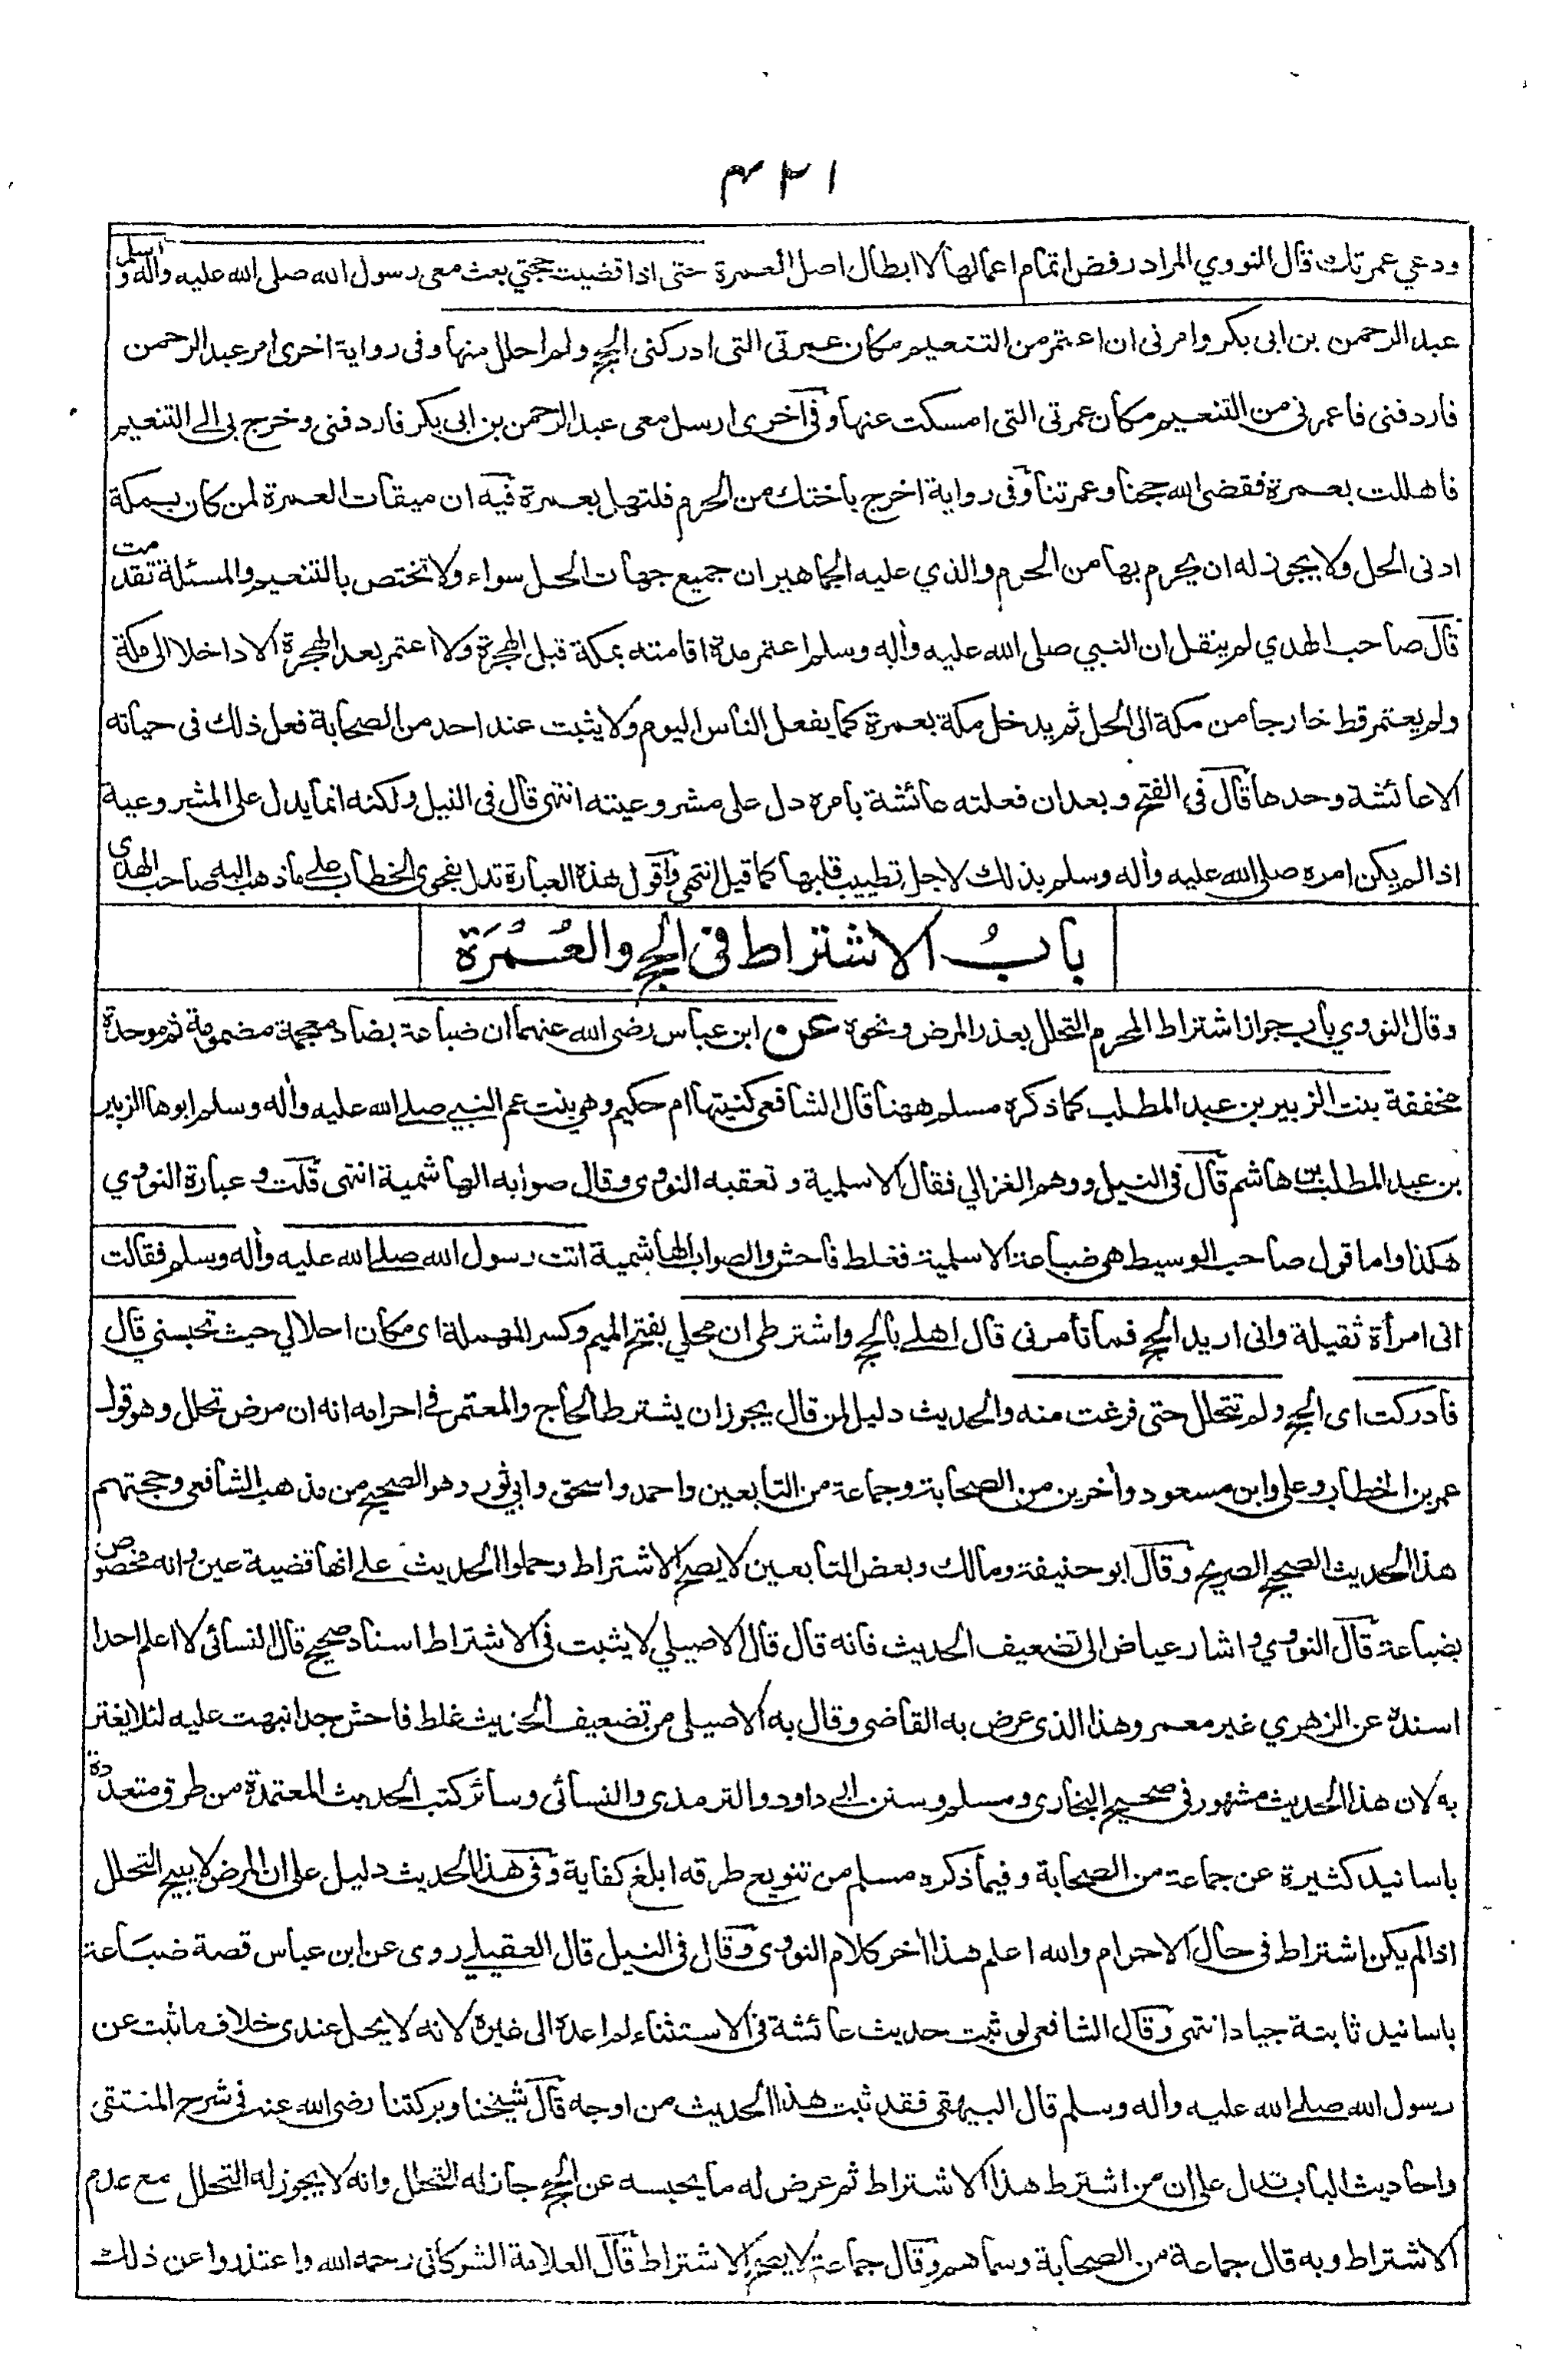 ٤٣١
ودعي عمرتك قال النووي المراد رفض اتمام اعمالها لا ابطال اصل العمرة حتى اذا قضيت حجتي بعث معى رسول الله صلى الله عليه واله وسلم
عبد الرحمن بن ابى بكر وامرنى ان اعتمر من التنعيم مكان عمرتى التى ادركنى الحج ولم احلل منها وفى رواية اخرى امر عبد الرحمن
فاردفنى فاعمرنى من التنعيم مكان عمرتى التى امسكت عنها وفى آخرى ارسل معى عبد الرحمن بن ابى بكر فاردفنى وخرج بى الى التنعيم
فاهللت بعمرة فقضى الله حجنا وعمرتنا وفى رواية اخرج باختك من الحرم فلتهل بعمرة فيه ان ميقات العمرة لمن كان بمكة
ادنى الحل ولا يجوز له ان يحرم بها من الحرم والذي عليه الجماهير ان جميع جهات الحل سواء ولا تختص بالتنعيم والمسئلة تقدمت
قال صاحب الهدي لم ينقل ان النبي صلى الله عليه وأله وسلم اعتمر مدة اقامته بمكة قبل الهجرة ولا اعتمر بعد الهجرة الا داخلا الى مكة
ولم يعتمر قط خارجا من مكة الى الحل ثم يدخل مكة بعمرة كما يفعل الناس اليوم ولا يثبت عند احد من الصحابة فعل ذلك فى حياته
الا عائشة وحدها قال فى الفتح وبعد ان فعلته عائشة بامره دل على مشروعيته انتهى قال فى النيل ولكنه انما يدل على المشروعية
اذا لم يكن امره صلى الله عليه وأله وسلم بذلك لاجل تطييب قلبها كما قيل انتهى وأقول هذه العبارة تدل بفحوى الخطاب على ما ذهب اليه صاحب الهدى
بابُ الاشتراط فى الحج والعُمُرَة
وقال النووي باب جواز اشتراط المحرم التحلل بعذر المرض ونحوه عن ابن عباس رضى الله عنهما ان ضباعة بضاد معجمة مضمومة ثم موحدة
مخففة بنت الزبير بن عبد المطلب كما ذكره مسلم ههنا قال الشافعى كنيتها ام حكيم وهى بنت عم النبي صلى الله عليه وأله وسلم ابوها الزبير
بن عبد المطلب بن هاشم قال فى النيل ووهم الغزالي فقال الاسلمية وتعقبه النووى وقال صوابه الهاشمية انتهى قلت وعبارة النووي
هكذا واما قول صاحب الوسيط هى ضباعة الاسلمية فغلط فاحش والصواب الهاشمية اتت رسول الله صلى الله عليه وأله وسلم فقالت
انى امرأة ثقيلة وانى اريد الحج فما تأمرنى قال اهلى بالحج واشترطى ان محلي بفتح الميم وكسر المهملة اى مكان احلالي حيث تحبسني قال
فادركت اى الحج ولم تتحلل حتى فرغت منه والحديث دليل لمن قال يجوز ان يشترط الحاج والمعتمر فى احرامه انه ان مرض تحلل وهو قول
عمر بن الخطاب وعلى وابن مسعود وأخرين من الصحابة وجماعة من التابعين واحمد واسحق وابي ثور وهو الصحيح من مذهب الشافعى وحجتهم
هذا الحديث الصحيح الصريح وقال ابو حنيفة ومالك وبعض التابعين لا يصح الاشتراط وحملوا الحديث على انها قضية عين وانه مخصوص
بضباعة قال النووي واشار عياض الى تضعيف الحديث فانه قال قال الاصيلي لا يثبت فى الاشتراط اسناد صحيح قال النسائى لا اعلم احدا
اسنده عن الزهري غير معمر وهذا الذى عرض به القاضى وقال به الاصيلى من تضعيف الحديث غلط فاحش جدا نبهت عليه لئلا يغتر
به لان هذا الحديث مشهور فى صحيح البخارى ومسلم وسنن ابى داود والترمذى والنسائى وسائر كتب الحديث المعتمدة من طرق متعددة
باسانيد كثيرة عن جماعة من الصحابة وفيما ذكره مسلم من تنويع طرقه ابلغ كفاية وفى هذا الحديث دليل على ان المرض لا يبيح التحلل
اذا لم يكن اشتراط فى حال الاحرام والله اعلم هذا أخر كلام النووى وقال فى النيل قال العقيلي روى عن ابن عباس قصة ضباعة
باسانيد ثابتة جياد انتهى وقال الشافعى لو ثبت حديث عائشة فى الاستثناء لم اعده الى غيره لانه لا يحل عندى خلاف ما ثبت عن
رسول الله صلى الله عليه وأله وسلم قال البيهقى فقد ثبت هذا الحديث من اوجه قال شيخنا وبركتنا رضى الله عنه فى شرح المنتقى
واحاديث الباب تدل على ان من اشترط هذا الاشتراط ثم عرض له ما يحبسه عن الحج جاز له التحلل وانه لا يجوز له التحلل مع عدم
الاشتراط وبه قال جماعة من الصحابة وسماهم وقال جماعة لا يصح الاشتراط قال العلامة الشوكانى رحمه الله واعتذروا عن ذلك